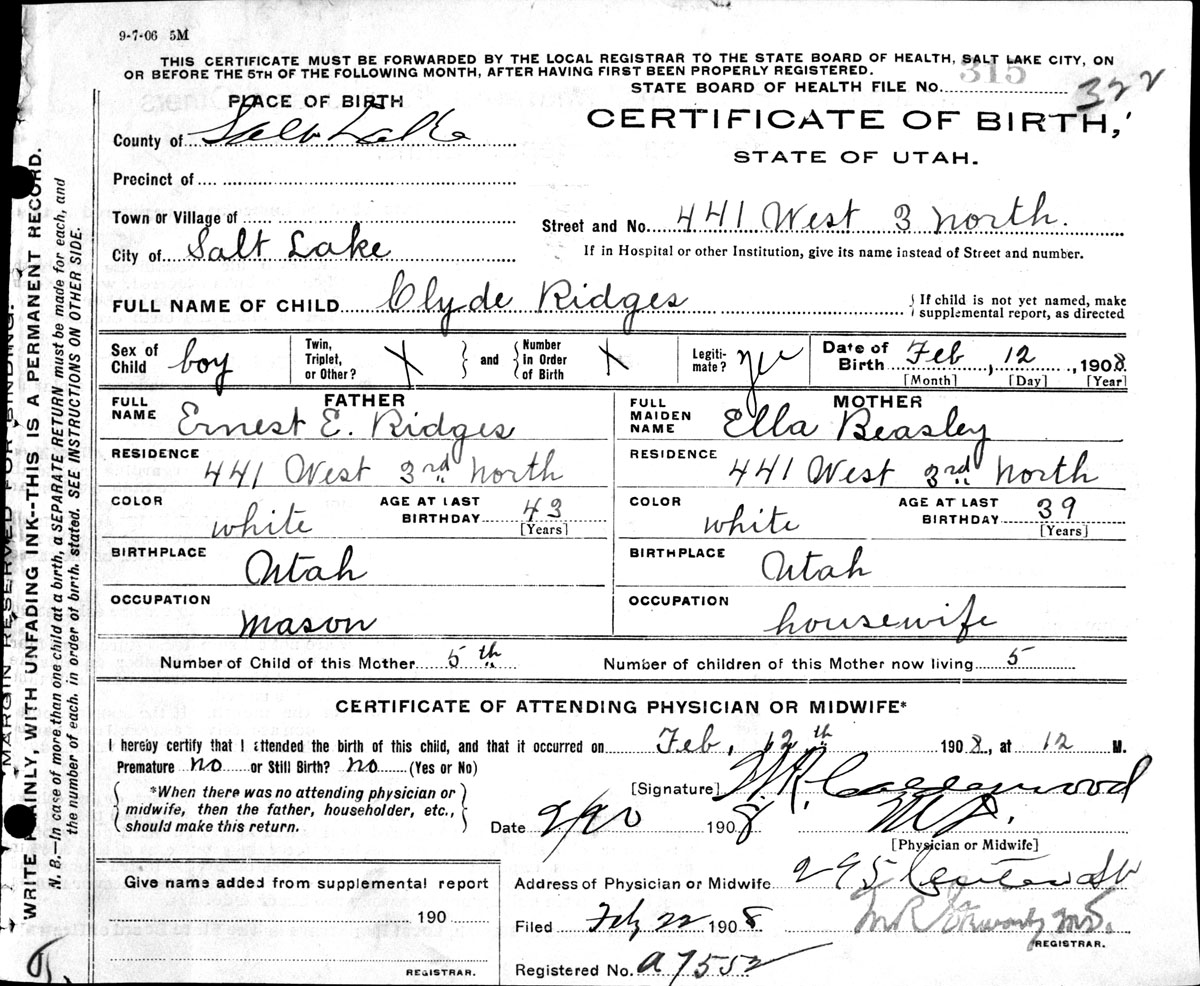 9-7-06 5M
THIS CERTIFICATE MUST BE FORWARDED BY THE LOCAL REGISTRAR TO THE STATE BOARD OF HEALTH, SALT LAKE CITY, ON
OR BEFORE THE 5TH OF THE FOLLOWING MONTH, AFTER HAVING FIRST BEEN PROPERLY REGISTERED.
315
STATE BOARD OF HEALTH FILE No. 322
PLACE OF BIRTH
CERTIFICATE OF BIRTH,
STATE OF UTAH.
County of Salt Lake
Precinct of
Town or Village of
Street and No. 441 West 3 North.
City of Salt Lake
If in Hospital or other Institution, give its name instead of Street and number.
FULL NAME OF CHILD Clyde Ridges
If child is not yet named, make
supplemental report, as directed
Sex of Child boy
Twin, Triplet, or Other? X
and
Number In Order of Birth X
Legiti-mate? yes
Date of Birth Feb, 12, 1908.
[Month] [Day] [Year]
FATHER
MOTHER
FULL NAME Ernest E. Ridges
FULL MAIDEN NAME Ella Beasley
RESIDENCE 441 West 3rd North
RESIDENCE 441 West 3rd North
COLOR white
AGE AT LAST BIRTHDAY 43 [Years]
COLOR white
AGE AT LAST BIRTHDAY 39 [Years]
BIRTHPLACE Utah
BIRTHPLACE Utah
OCCUPATION Mason
OCCUPATION housewife
Number of Child of this Mother 5th
Number of children of this Mother now living 5
CERTIFICATE OF ATTENDING PHYSICIAN OR MIDWIFE*
I hereby certify that I attended the birth of this child, and that it occurred on Feb, 12th 1908, at 12 M.
Premature no or Still Birth? no (Yes or No)
*When there was no attending physician or
midwife, then the father, householder, etc.,
should make this return.
[Signature]
M.D.
Date 1908
[Physician or Midwife]
Give name added from supplemental report
190
REGISTRAR.
Address of Physician or Midwife 295
Filed Feby 22 1908
REGISTRAR.
Registered No. a7552
MARGIN RESERVED FOR BINDING.
WRITE PLAINLY, WITH UNFADING INK--THIS IS A PERMANENT RECORD.
N. B.—In case of more than one child at a birth, a SEPARATE RETURN must be made for each, and
the number of each, in order of birth, stated. SEE INSTRUCTIONS ON OTHER SIDE.